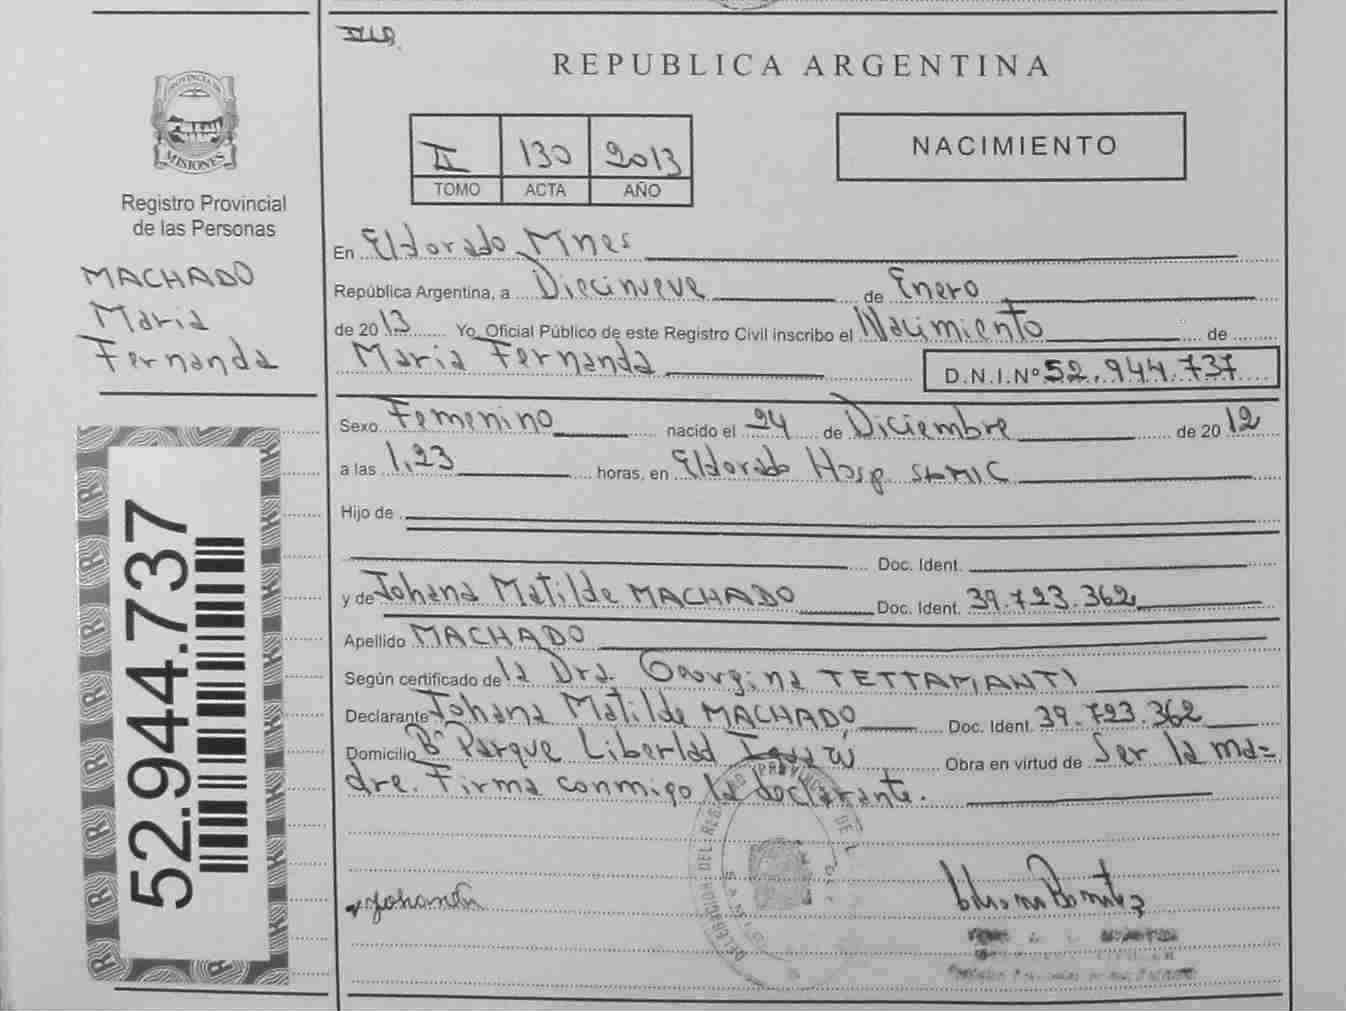 REPUBLICA ARGENTINA
PROVINCIA DE
MISIONES
Registro Provincial
de las Personas
MACHADO
Maria
Fernanda
52.944.737
II 130 2013
TOMO ACTA AÑO
NACIMIENTO
En Eldorado Mnes
República Argentina, a Diecinueve de Enero
de 2013 Yo, Oficial Público de este Registro Civil inscribo el Nacimiento de
Maria Fernanda D.N.I.Nº 52.944.737
Sexo Femenino nacido el 24 de Diciembre de 2012
a las 1,23 horas, en Eldorado Hosp. SAMIC
Hijo de
Doc. Ident.
y de Johana Matilde MACHADO Doc. Ident. 39.723.362
Apellido MACHADO
Según certificado de la Dra. Georgina TETTAMANTI
Declarante Johana Matilde MACHADO Doc. Ident. 39.723.362
Domicilio Bº Parque Libertad Obra en virtud de Ser la ma=
dre. Firma conmigo la declarante.
DELEGACION DEL REGISTRO PROVINCIAL DE